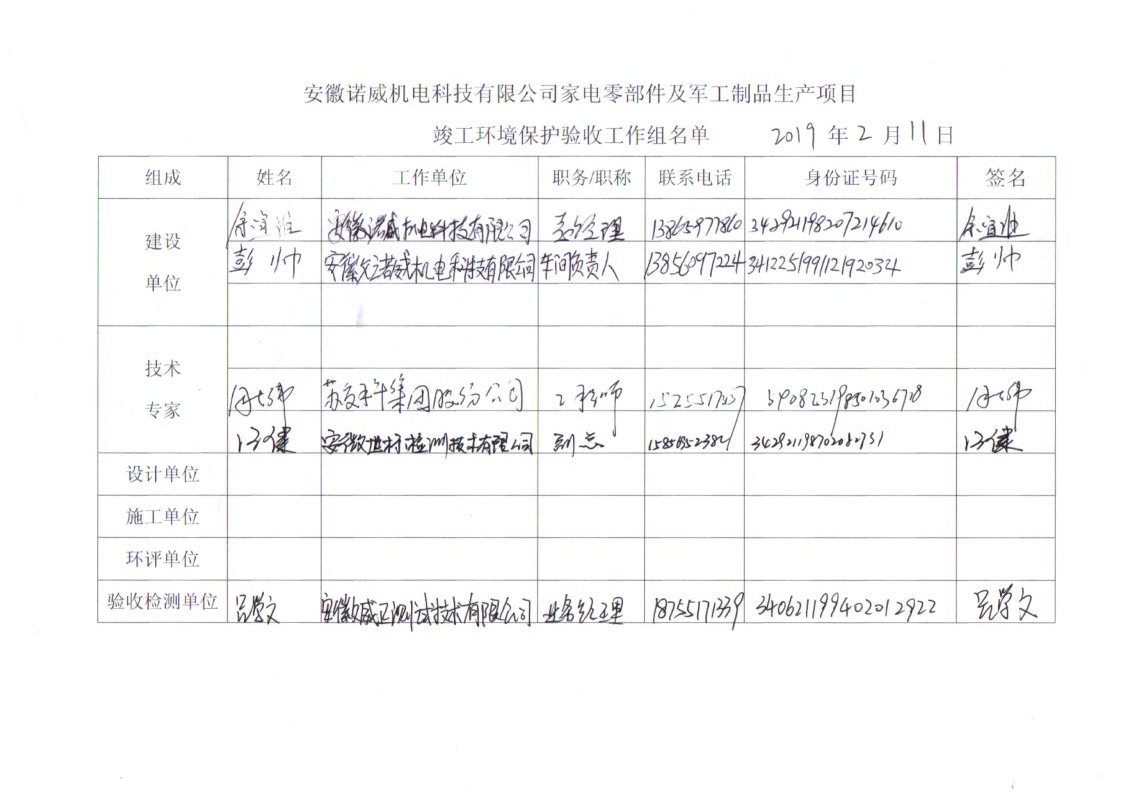 安徽诺威机电科技有限公司家电零部件及军工制品生产项目
竣工环境保护验收工作组名单 2019 年 2 月 11 日
组成 姓名 工作单位 职务/职称 联系电话 身份证号码 签名
建设
单位
安徽诺威机电科技有限公司 总经理 13865977860 342921198207214610
彭帅 安徽诺威机电科技有限公司 车间负责人 13856097224 341225199112192034 彭帅
技术
专家
集团股份公司 工程师
检测技术有限公司
设计单位
施工单位
环评单位
验收检测单位 吕学文 安徽威正测试技术有限公司 业务经理 18755171339 340621199402012922 吕学文